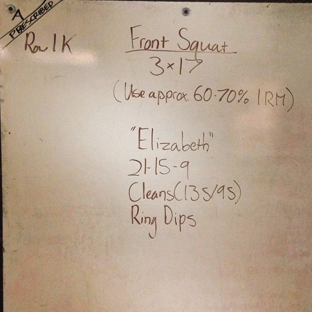 As
PRESCRIBED
Row 1K
Front Squat
3x17
(Use approx 60-70% 1RM)
"Elizabeth"
21-15-9
Cleans(135/95)
Ring Dips